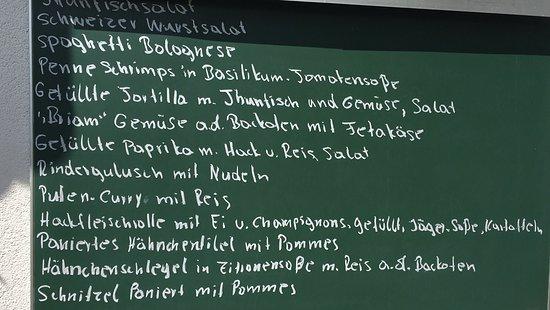 Thunfischsalat
Schweizer Wurstsalat
Spaghetti Bolognese
Penne Schrimps in Basilikum-Tomatensoße
Gefüllte Tortilla m. Thunfisch und Gemüse, Salat
"Briam" Gemüse a.d. Backofen mit Fetakäse
Gefüllte Paprika m. Hack u. Reis, Salat
Rindergulusch mit Nudeln
Puten-Curry mit Reis
Hackfleischrolle mit Ei u. Champignons, gefüllt, Jäger-Soße, Kartoffeln
Paniertes Hähnchenfilet mit Pommes
Hähnchenschlegel in Zitronensoße m. Reis a.d. Backofen
Schnitzel Paniert mit Pommes